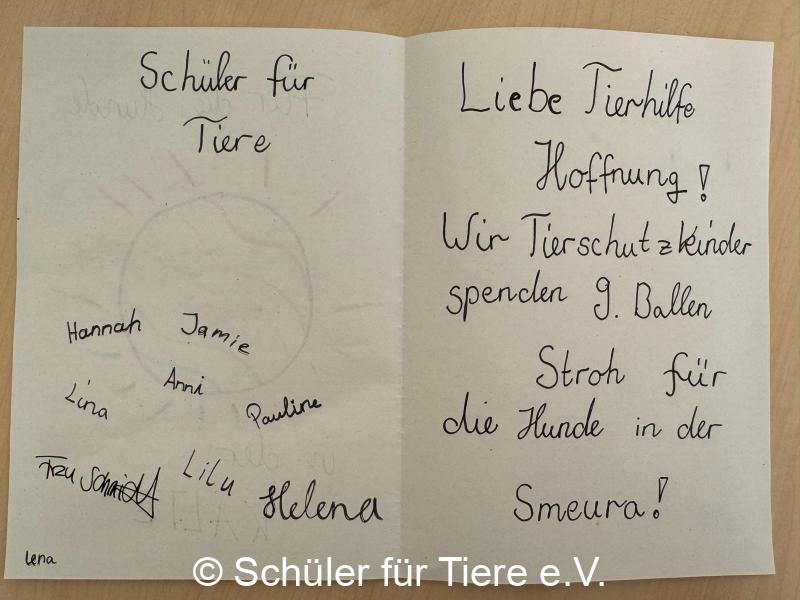 Schüler für
Tiere
Hannah Jamie
Lina Anni Pauline
Frau Schmidt Lilu Helena
Lena
Liebe Tierhilfe
Hoffnung!
Wir Tierschutzkinder
spenden 9. Ballen
Stroh für
die Hunde in der
Smeura!
© Schüler für Tiere e.V.